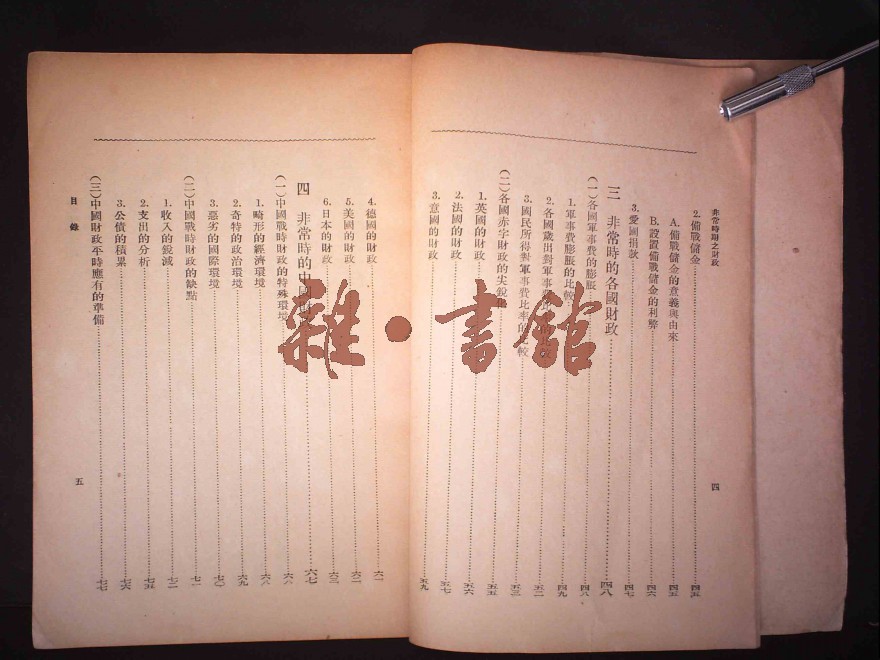 非常時期之財政
四
2. 備戰儲金 四五
A. 備戰儲金的意義與由來 四五
B. 設置備戰儲金的利弊 四六
3. 愛國捐款 四七
三 非常時的各國財政 四八
(一)各國軍事費的膨脹 四八
1. 軍事費膨脹的比較 四九
2. 各國歲出對軍事 五二
3. 國民所得對軍事費比率的比較 五三
(二)各國赤字財政的尖銳化 五五
1. 英國的財政 五五
2. 法國的財政 五六
3. 意國的財政 五九
4. 德國的財政 六一
5. 美國的財政 六二
6. 日本的財政 六三
四 非常時的中國財政 六七
(一)中國戰時財政的特殊環境 六八
1. 畸形的經濟環境 六八
2. 奇特的政治環境 六九
3. 惡劣的國際環境 七〇
(二)中國戰時財政的缺點 七一
1. 收入的銳減 七二
2. 支出的分析 七五
3. 公債的積累 七六
(三)中國財政平時應有的準備 七七
目錄
五
雜·書館